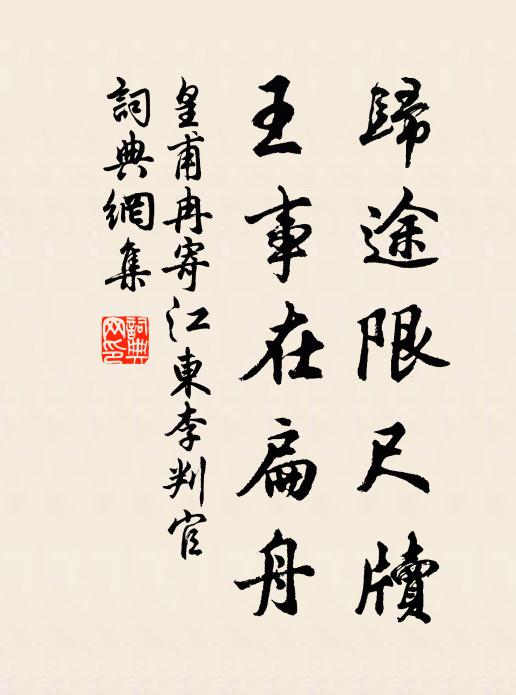 歸途限尺牘
王事在扁舟
皇甫冉寄江東李判官
詞典網集
詞典網印